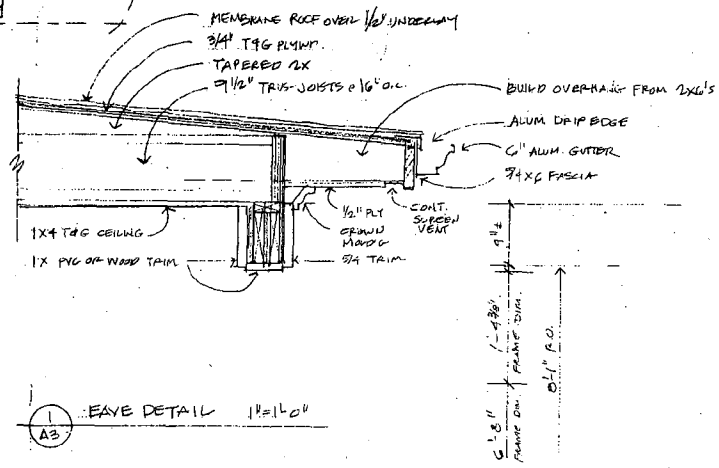 MEMBRANE ROOF OVER 1/2" UNDERLAY
3/4" T&G PLYWD.
TAPERED 2X
9 1/2" TRUS-JOISTS @ 16" O.C.
BUILD OVERHANG FROM 2X6'S
ALUM DRIP EDGE
6" ALUM. GUTTER
5/4X6 FASCIA
1X4 T&G CEILING
1X PVC OR WOOD TRIM
1/2" PLY
CROWN
MOLD'G
CONT.
SCREEN
VENT
5/4 TRIM
9"±
1'-4 3/8"
FRAME DIM.
8'-1" R.O.
6'-8"
FRAME DIM.
1
A3
EAVE DETAIL 1"=1'-0"